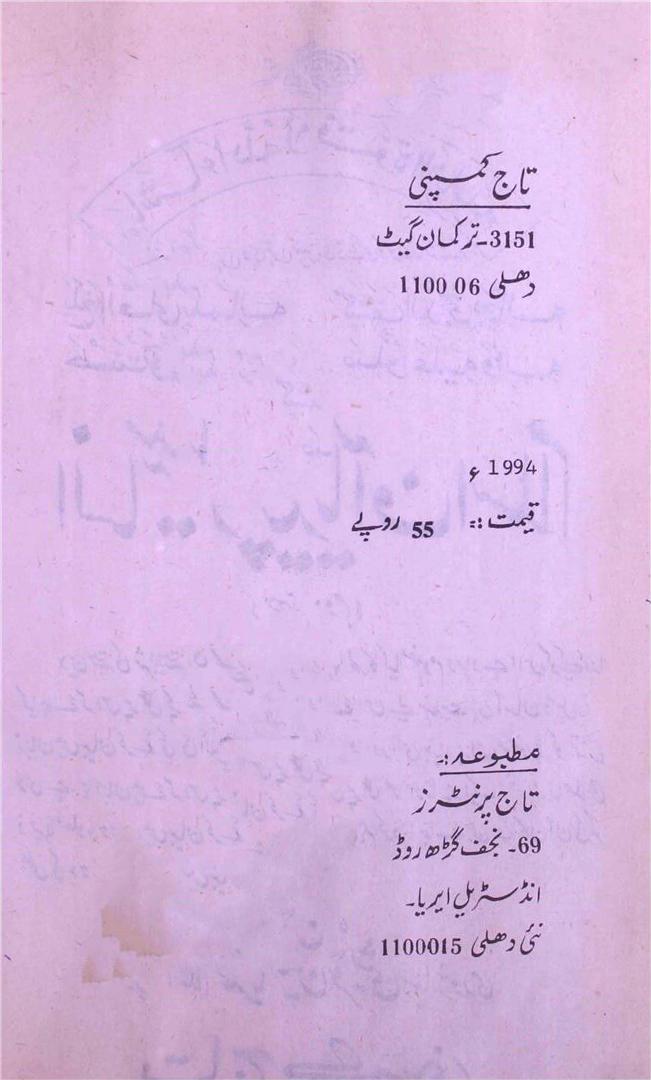 تاج کمپنی
3151-ترکمان گیٹ
دھلی 06 1100
1994 ء
قیمت :: 55 روپے
مطبوعہ:۔
تاج پرنٹرز
69۔ نجف گڑھ روڈ
انڈسٹریل ایریا۔
نئی دھلی 1100015